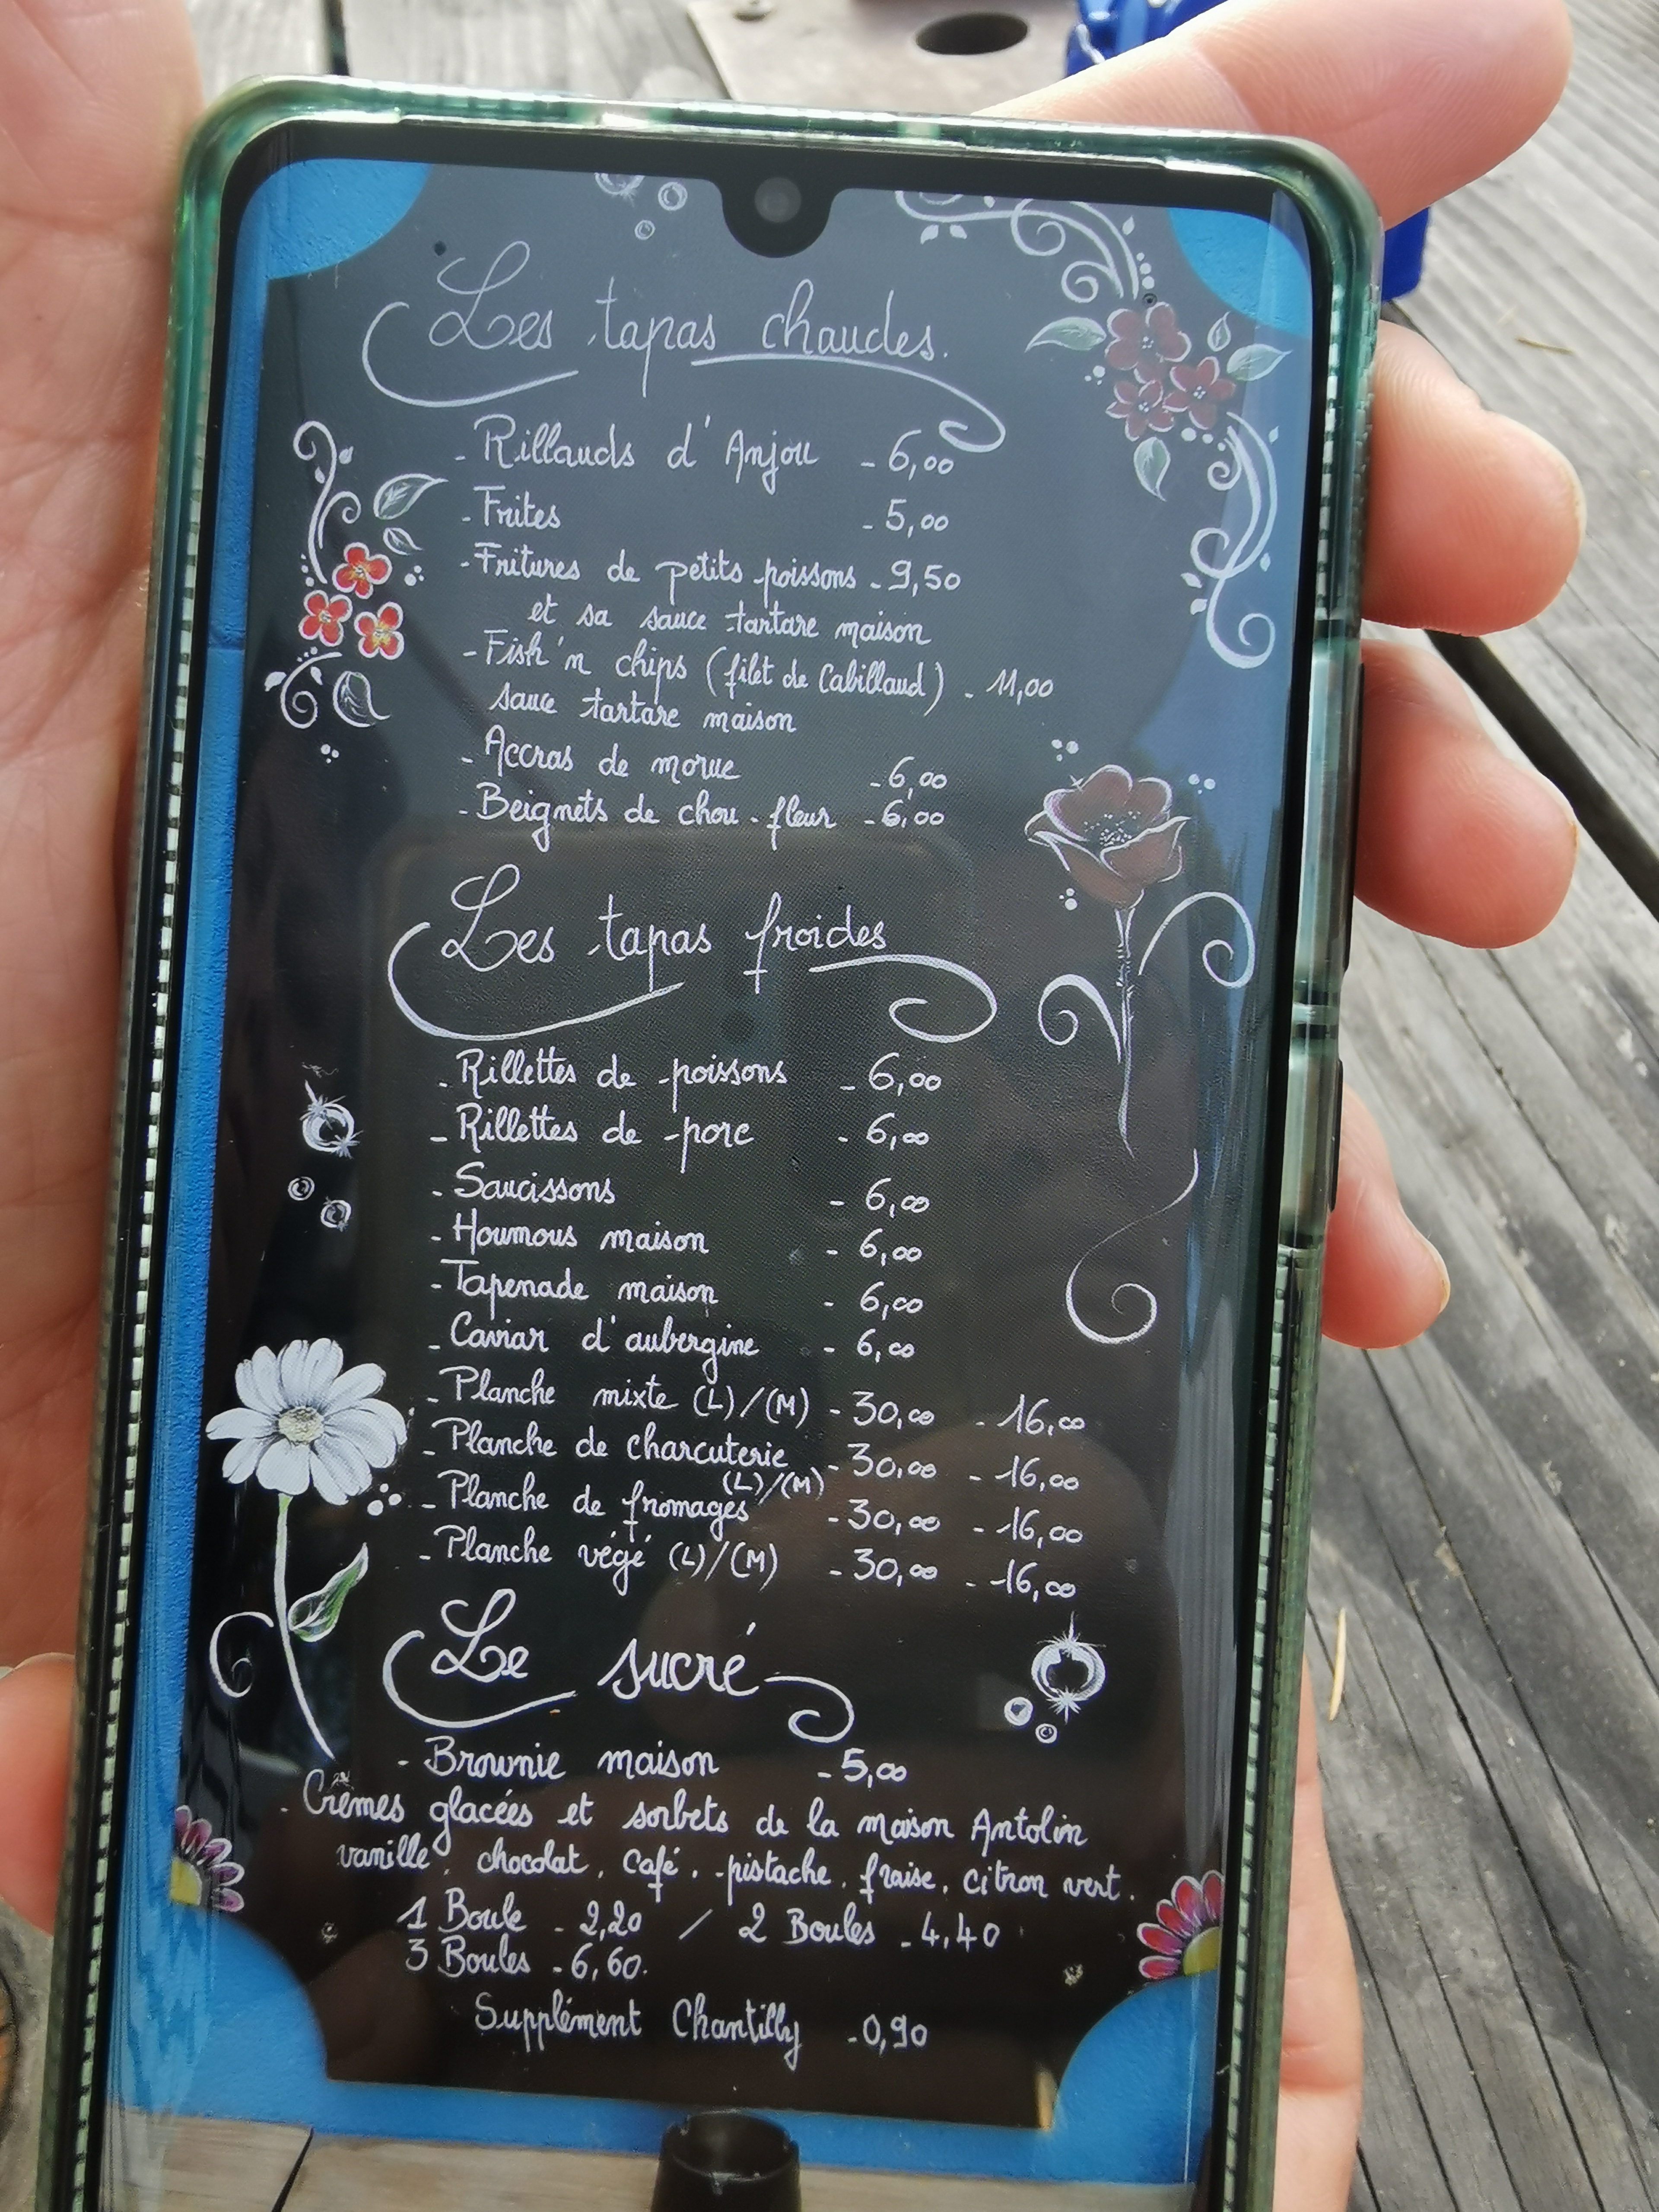 Les tapas chaudes.
- Rillauds d'Anjou - 6,00
- Frites - 5,00
- Fritures de petits poissons - 9,50
et sa sauce tartare maison
- Fish'n chips (filet de Cabillaud) - 11,00
sauce tartare maison
- Accras de morue - 6,00
- Beignets de chou-fleur - 6,00
Les tapas froides
- Rillettes de poissons - 6,00
- Rillettes de porc - 6,00
- Saucissons - 6,00
- Houmous maison - 6,00
- Tapenade maison - 6,00
- Caviar d'aubergine - 6,00
- Planche mixte (L)/(M) - 30,00 - 16,00
- Planche de charcuterie - 30,00 - 16,00
(L)/(M)
- Planche de fromages - 30,00 - 16,00
- Planche végé (L)/(M) - 30,00 - 16,00
Le sucré
- Brownie maison - 5,00
- Crèmes glacées et sorbets de la maison Antolin
vanille. chocolat. Café. pistache. fraise. citron vert.
1 Boule - 2,20 / 2 Boules - 4,40
3 Boules - 6,60.
Supplément Chantilly - 0,90